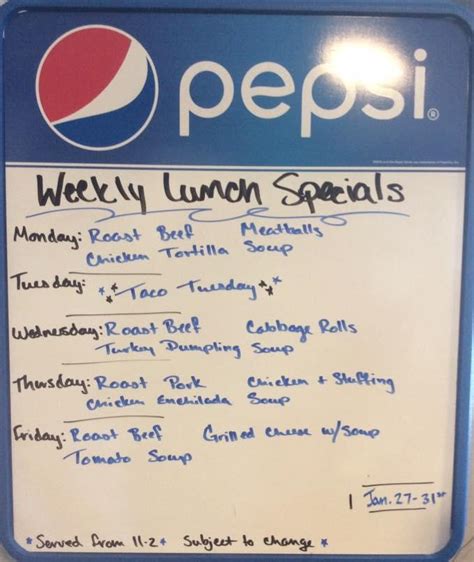 pepsi®
Weekly Lunch Specials
Monday: Roast Beef Meatballs
Chicken Tortilla Soup
Tuesday: Taco Tuesday
Wednesday: Roast Beef Cabbage Rolls
Turkey Dumpling Soup
Thursday: Roast Pork Chicken + Stuffing
Chicken Enchilada Soup
Friday: Roast Beef Grilled Cheese w/Soup
Tomato Soup
Jan. 27-31st
*Served from 11-2* Subject to change *